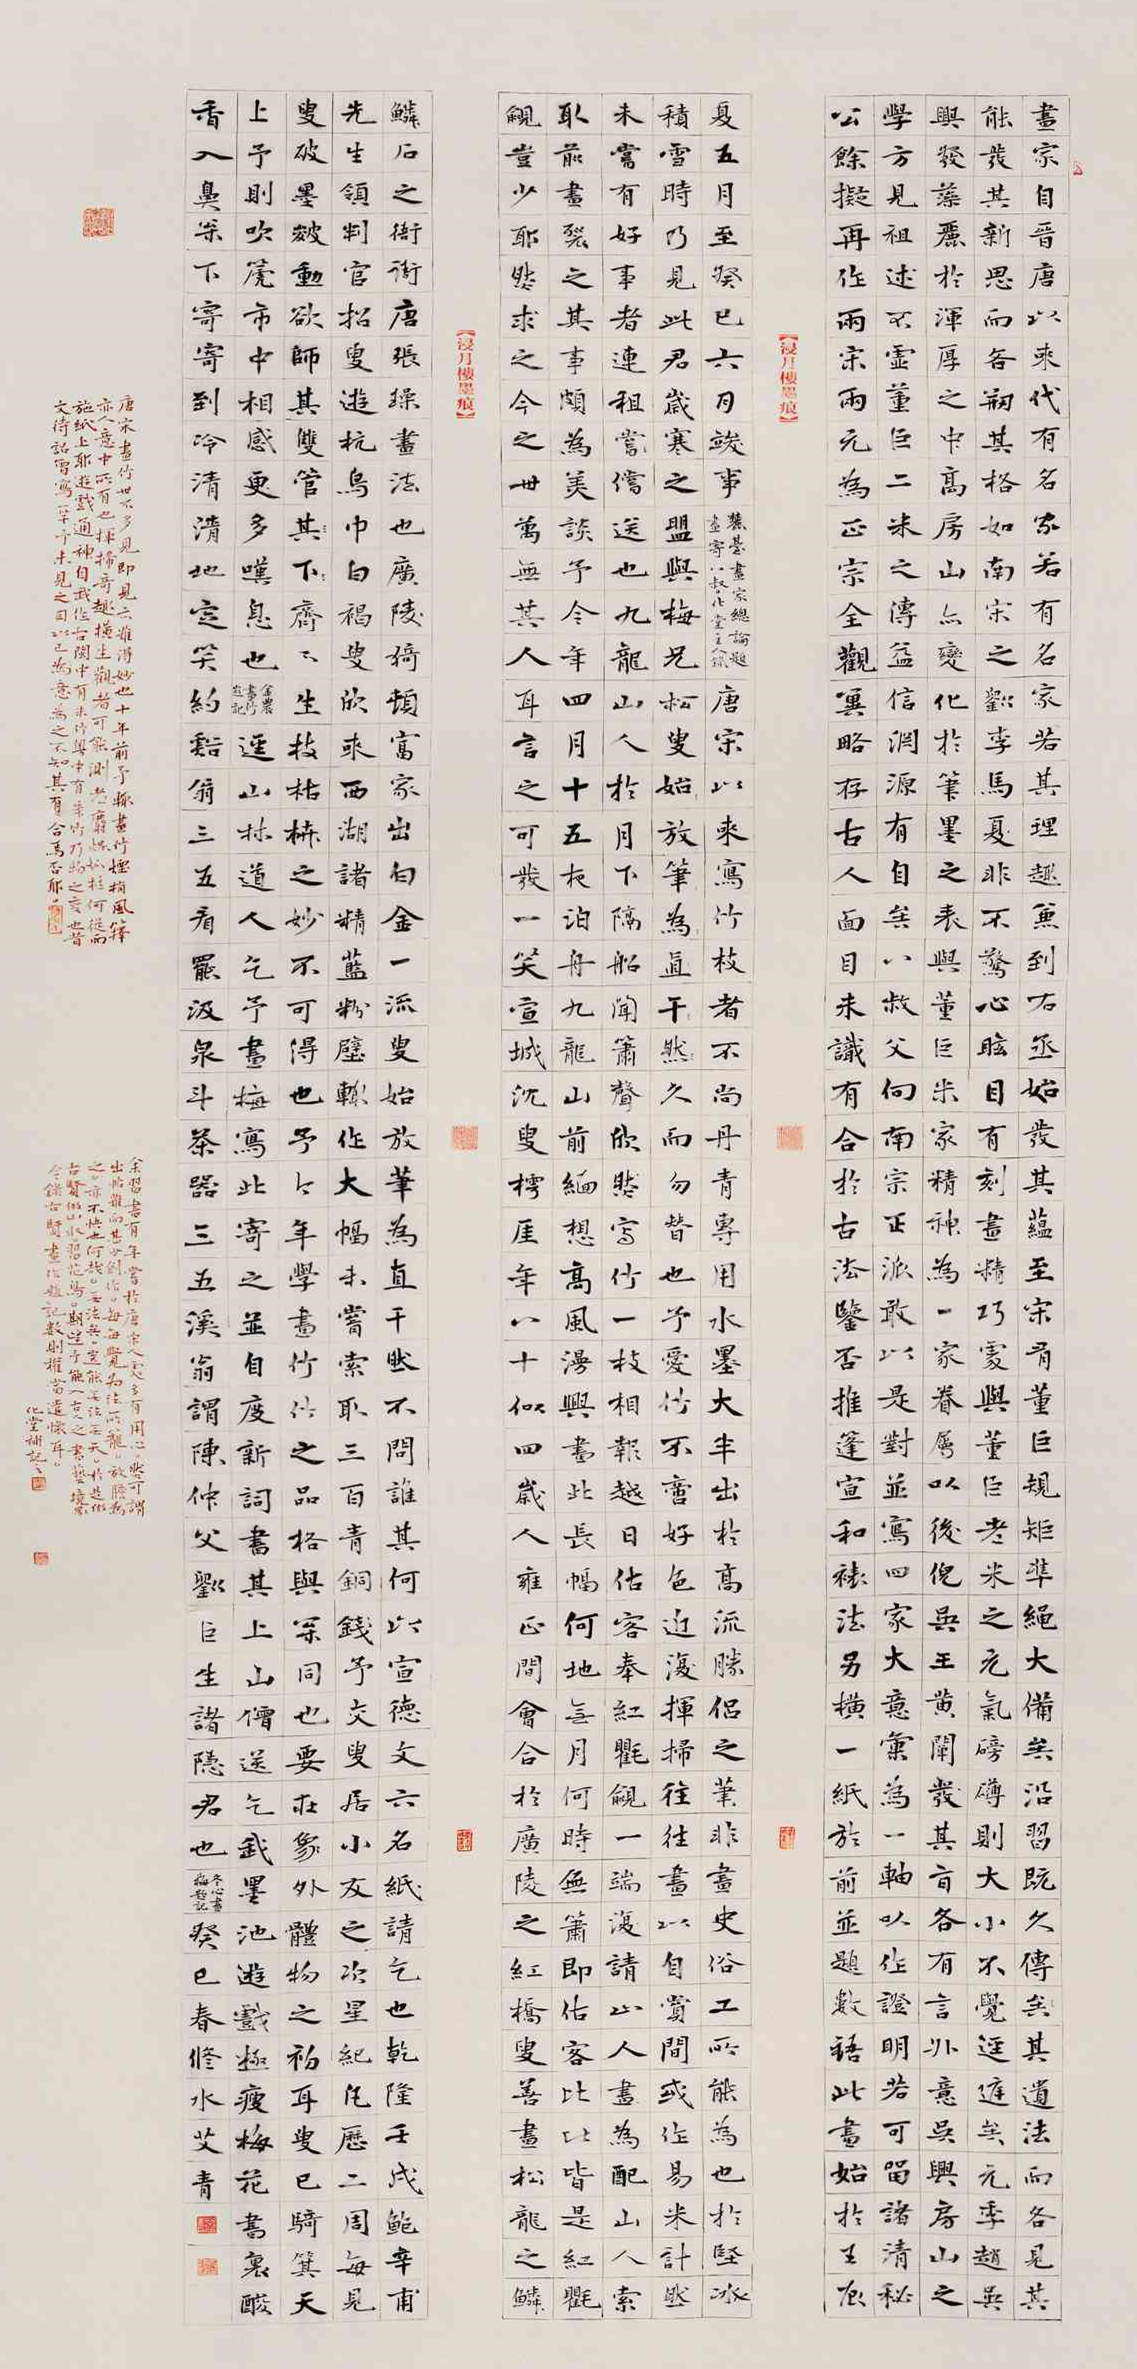 畫家自晉唐以來代有名家若有名家若其理趣兼到右丞始發其蘊至宋有董巨規矩準繩大備矣沿習既久傳矣其遺法而各見其
能發其新思而各刱其格如南宋之劉李馬夏非不驚心眩目有刻畫精巧處與董巨老米之元氣磅礡則大小不覺逕庭矣元季趙吳
興發藻麗於渾厚之中高房山示變化於筆墨之表與董巨米家精神為一家眷屬以後倪吳王黃闡發其旨各有言外意吳興房山之
學方見祖述不虛董巨二米之傳益信淵源有自矣八叔父向南宗正派敢以是對並寫四家大意彙為一軸以作證明若可留諸清秘
公餘擬再作兩宋兩元為正宗全觀冀略存古人面目未識有合於古法鑒否推篷宣和裱法另橫一紙於前並題數語此畫始於壬辰
夏五月至癸巳六月竣事
麓臺畫家總論題
畫寄八叔化堂主人錄
唐宋以來寫竹枝者不尚丹青專用水墨大半出於高流勝侶之筆非畫史俗工所能為也於堅冰
積雪時乃見此君歲寒之盟與梅兄松叟始放筆為直干然久而勿替也予愛竹不啻好色近復揮掃往往畫以自賞間或作易米計然
未嘗有好事者連租嘗償送也九龍山人於月下隔船聞簫聲欣然寫竹一枝相報越日估客奉紅氍毹一端復請山人畫為配山人索
取前畫裂之其事頗為美談予今年四月十五夜泊舟九龍山前緬想高風漫興畫此長幅何地無月何時無簫即估客比比皆是紅氍
毹豈少耶然求之今之世萬無其人耳言之可發一笑宣城沈叟樗厓年八十似四歲人雍正間會合於廣陵之紅橋叟善畫松龍之鱗
鱗石之衙衙唐張璪畫法也廣陵猗頓富家出白金一流叟始放筆為直干然不問誰其何以宣德文六名紙請乞也乾隆壬戌鮑辛甫
先生領判官招叟遊杭烏巾白褐叟欣來西湖諸精藍粉壁輒作大幅未嘗索取三百青銅錢予交叟居小友之次星紀凡歷二周每見
叟破墨皴動欲師其雙管其下齊下生枝枯枿之妙不可得也予今年學畫竹竹之品格與松同也要在象外體物之初耳叟已騎箕天
上予則吹篪市中相感更多嘆息也
金農
畫竹
題記
逕山林道人乞予畫梅寫此寄之並自度新詞書其上山僧送乞戟墨池遊戲極瘦梅花書裏酸
香入鼻松下寄寄到冷清清地定笑約谿翁三五看罷汲泉斗茶器三五溪翁謂陳仲父劉巨生諸隱君也
冬心畫
梅題記
癸巳春修水艾青
【浸月樓墨痕】
【浸月樓墨痕】
唐宋畫竹世不多見即見亦難得妙也十年前予輒畫竹煙梢風籜
亦人意中所有也揮掃奇趣橫生觀者可能測
施紙上耶遊戲通神自我作古閱中有朱竹
文待詔嘗寫一竿予未見之因以己為意為之不知其有合焉否耶
余習書有年嘗於唐宋人處多有用心
今錄古賢畫法題記數則權當遣懷耳
化堂補記